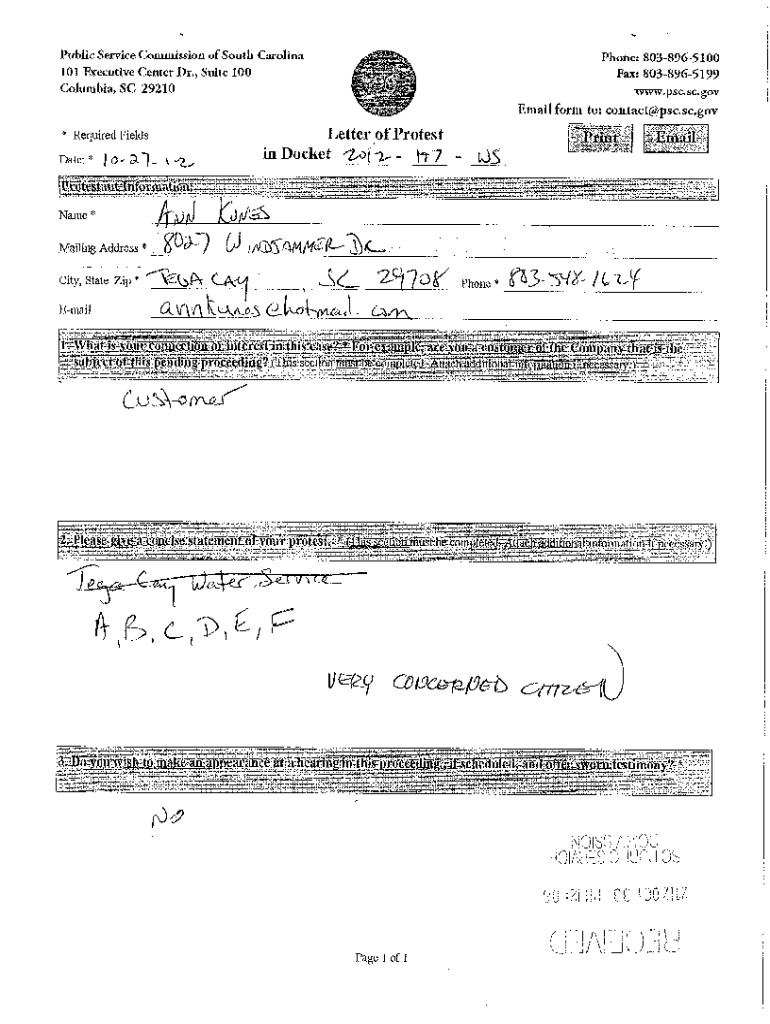 Public Service Commission of South Carolina
101 Executive Center Dr., Suite 100
Columbia, SC 29210
Phone: 803-896-5100
Fax: 803-896-5199
www.psc.sc.gov
Email form to: contact@psc.sc.gov
* Required Fields
Letter of Protest
Print Email
Date: * 10-27-12
in Docket 2012 - 177 - WS
Protestant Information:
Name * ANN KUNES
Mailing Address * 8027 WINDJAMMER DR
City, State Zip * TEGA CAY SC 29708 Phone * 803-548-1624
E-mail annkunes@hotmail.com
1. What is your connection or interest in this case? * For example, are you a customer of the Company that is the
subject of this pending proceeding? (This section must be completed. Attach additional information if necessary.)
Customer
2. Please give a concise statement of your protest. * (This section must be completed. Attach additional information if necessary.)
Tega Cay Water Service
A, B, C, D, E, F
VERY CONCERNED CITIZEN
3. Do you wish to make an appearance at a hearing in this proceeding, if scheduled, and offer sworn testimony? *
NO
RECEIVED
Page 1 of 1